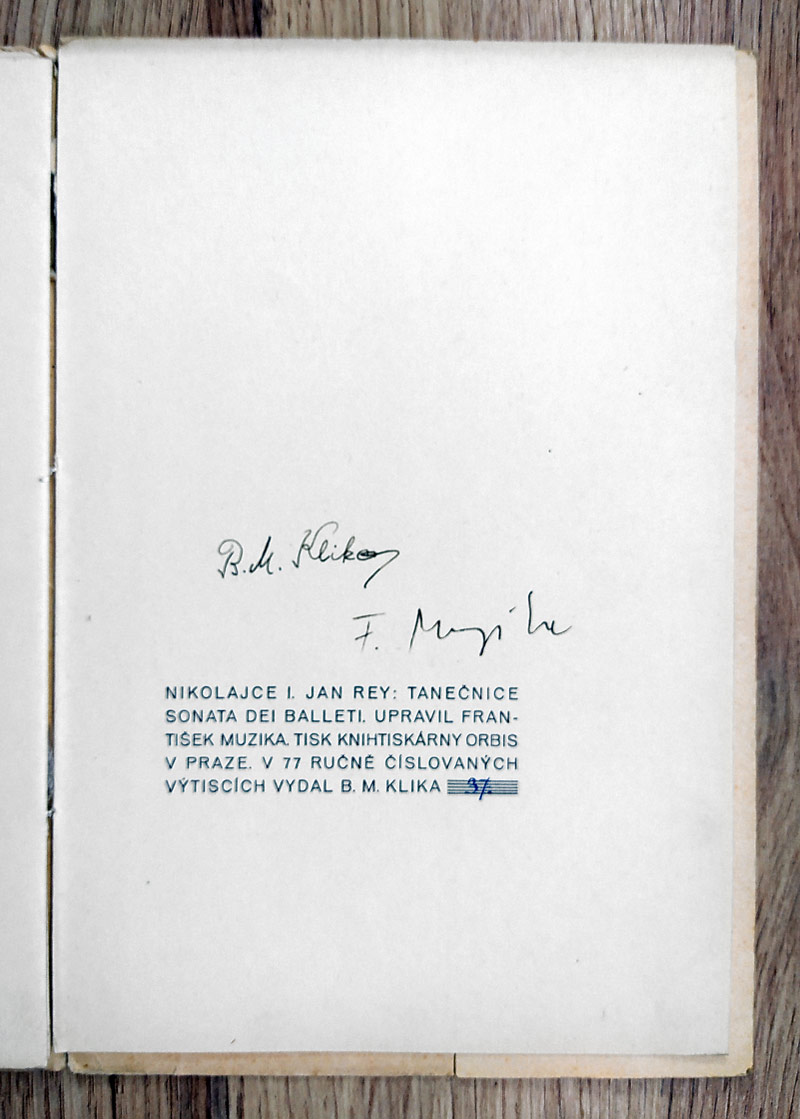 B. M. Klika
F. Muzika
NIKOLAJCE I. JAN REY: TANEČNICE
SONATA DEI BALLETI. UPRAVIL FRAN-
TIŠEK MUZIKA. TISK KNIHTISKÁRNY ORBIS
V PRAZE. V 77 RUČNĚ ČÍSLOVANÝCH
VÝTISCÍCH VYDAL B. M. KLIKA 37.